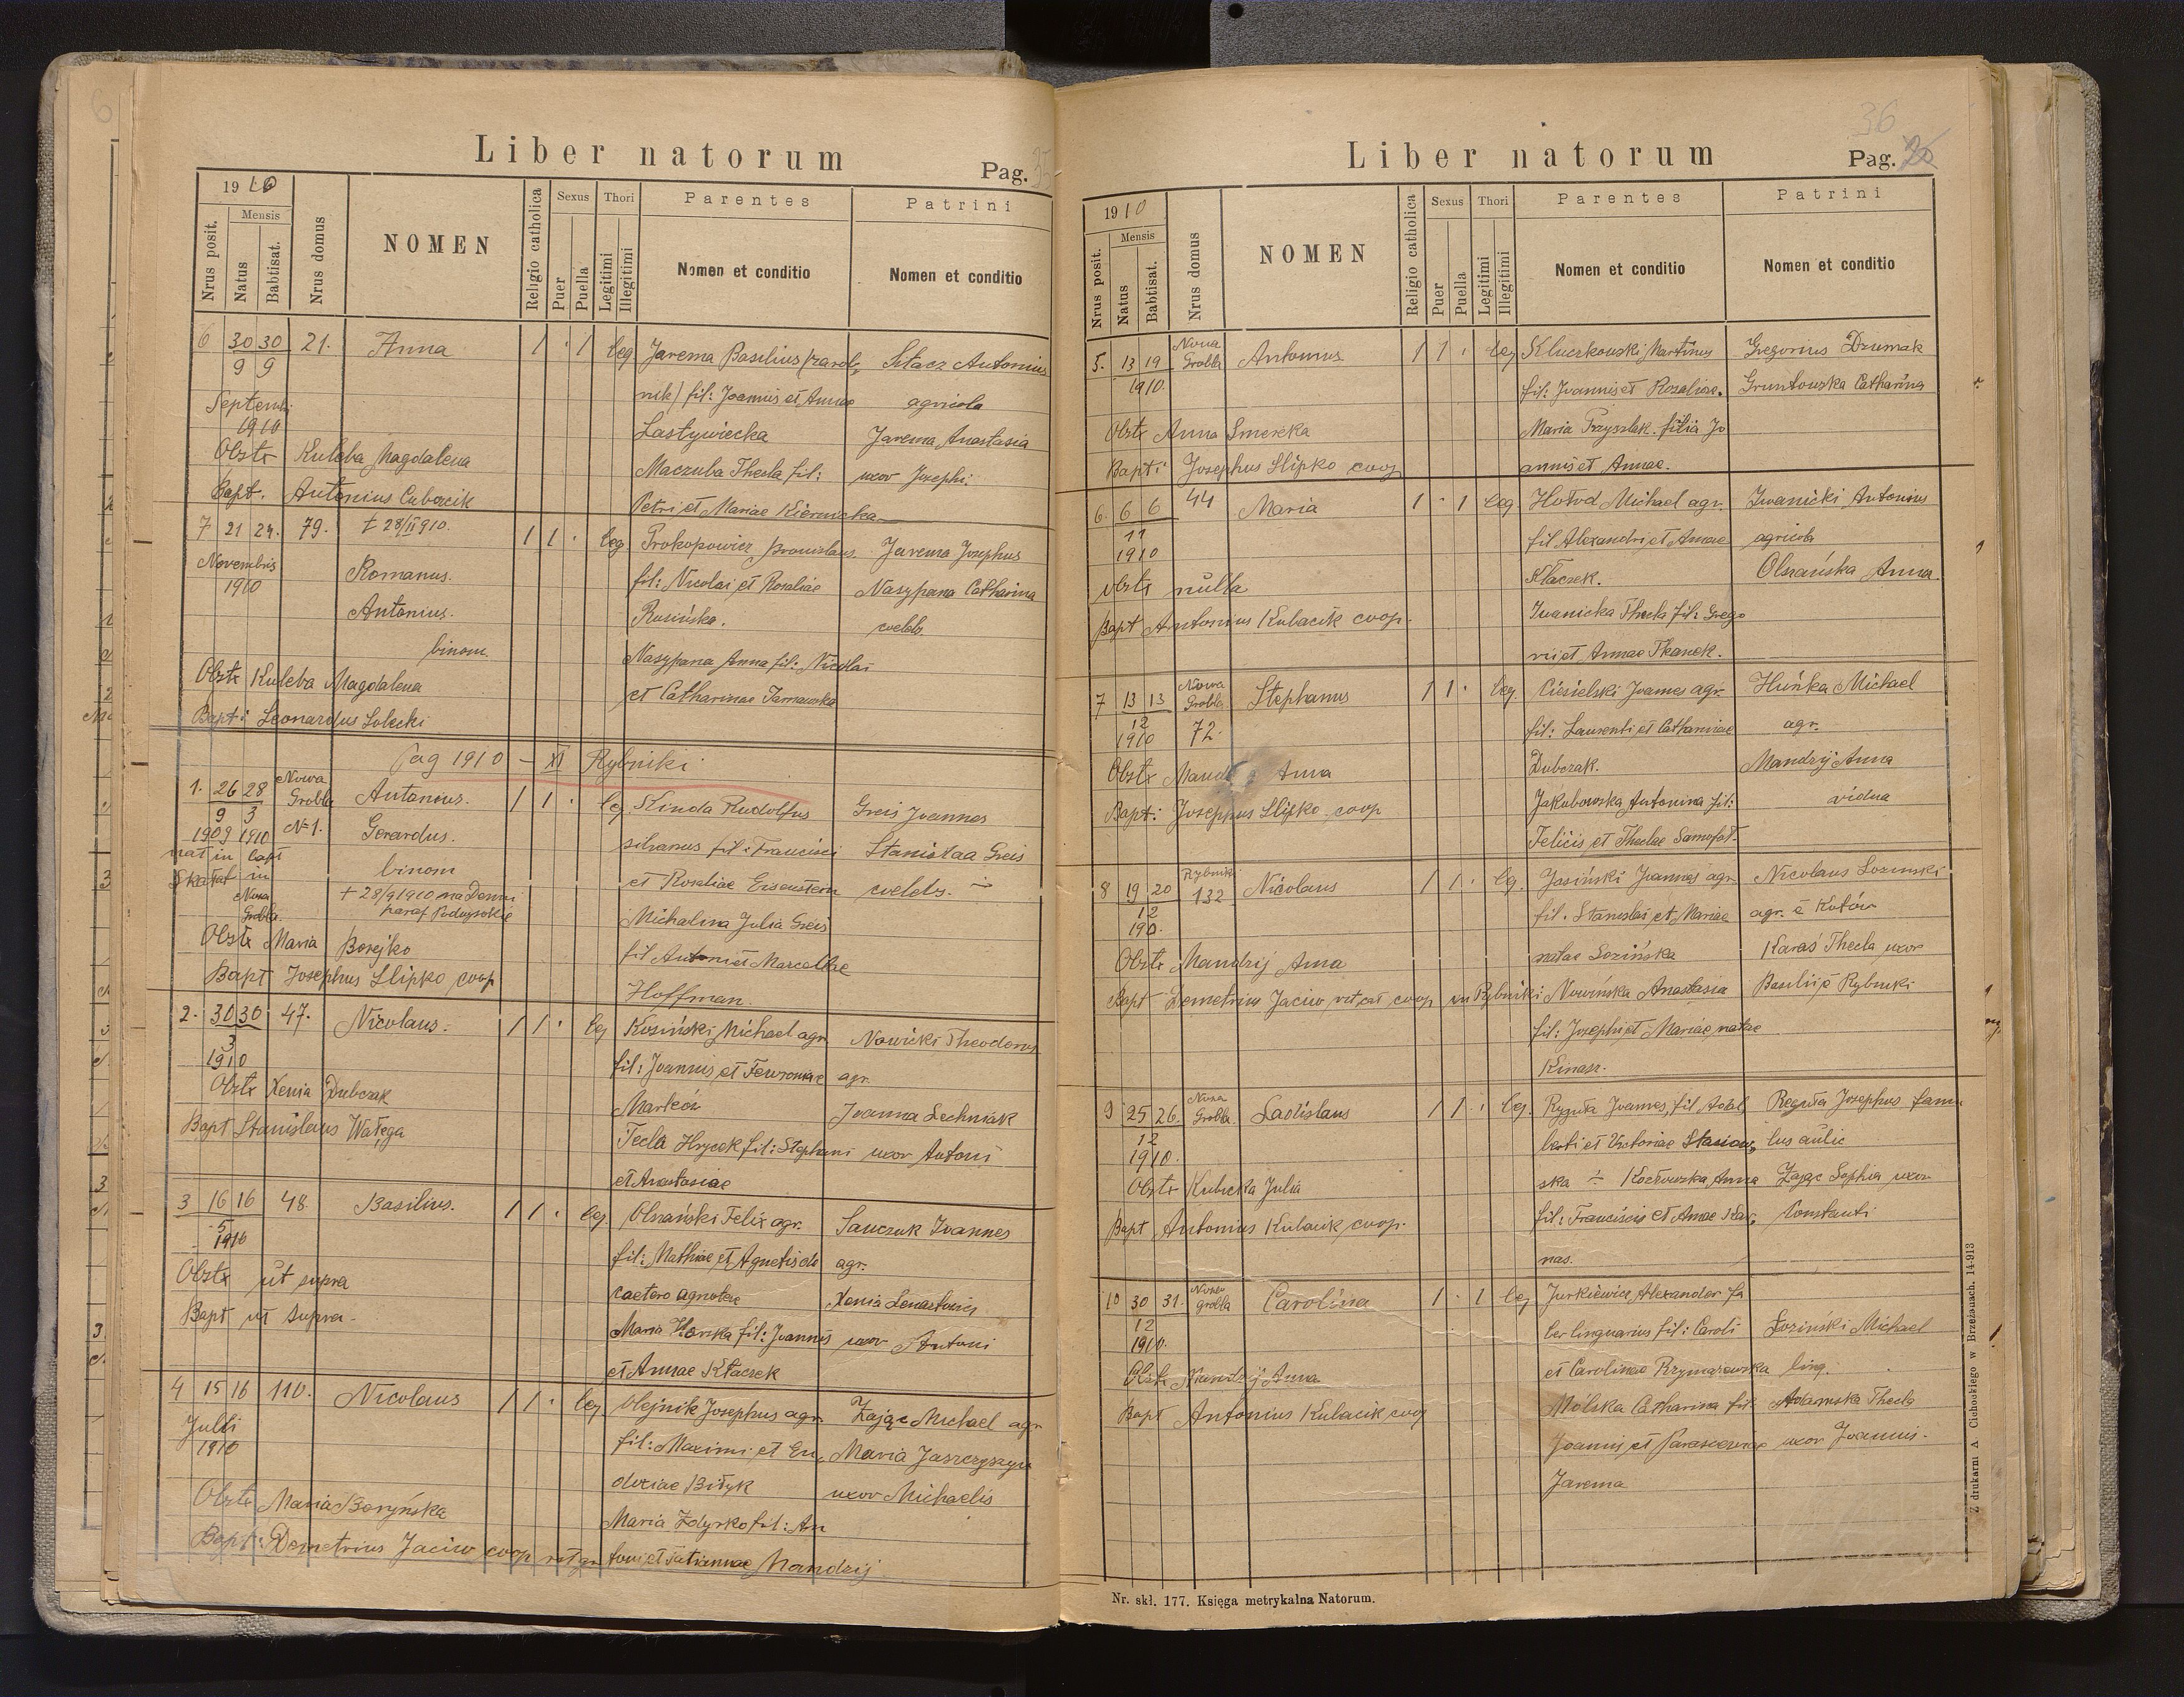 Liber natorum
Pag. 35
1910
Nrus posit.
Mensis
Natus
Babtisat.
Nrus domus
NOMEN
Religio catholica
Sexus
Puer
Puella
Thori
Legitimi
Illegitimi
Parentes
Nomen et conditio
Patrini
Nomen et conditio
6 30 30 21. Anna 1 · 1 leg Jarema Basilius (zarob„ Statcz Antonius
9 9 nik) fil: Joannis et Annae agricola
Septembr
1910 Lastywiecka Jarema Anastasia
Obstx Kuleba Magdalena Maczuba Thecla fil: uxor Josephi
Bapt. Antonius Cuborcik Petri et Mariae Kiernicka
7 21 24. 79. † 28/II 910. 1 1 · leg. Prokopowicz Bronislaus Jarema Josephus
Novembris Romanus. fil: Nicolai et Rosaliae Nasypana Catharina
1910 Antonius. Rusińska. coelebs
binom. Nasypana Anna fil: Nicolai
Obstx Kuleba Magdalena et Catharinae Tarnawska
Bapt: Leonardus Solecki
Pag 1910 — XI Rybniki
1. 26 28 Nowa Antonius. 1 1 · leg. Kinda Rudolfus Greis Joannes
9 3 Grobla
1909 1910 N-1. Gerardus. silvanus fil: Francisci Stanislaa Greis
nat in bapt binom et Rosaliae Eisenstein coelebs. ÷
Skałat in
Nowa † 28/9 1910 na Demni
Grobla. paraf Podwysokie Michalina Julia Greis
Obstx Maria Borejko fil Antoni et Marcellae
Bapt Josephus Slipko coop Hoffman.
2. 30 30 47. Nicolaus. 1 1 · leg Kosiński Michael agr. Nowicki Theodorus
3
1910 fil: Joannis et Fewroniae agr.
Obstx Xenia Dubczak Marków Joanna Lechniak
Bapt Stanislaus Wałęga Tecla Hrycek fil: Stephani uxor Antoni
et Anastasiae
3 16 16 48. Basilius. 1 1 · leg. Olszański Felix agr. Sauczuk Joannes
5
1910 fil: Mathiae et Agnetis de agr.
Obstx ut supra caetero agnotae Xenia
Bapt ut supra. Maria Horska fil: Joannis uxor Antoni
et Annae Kłaczek
4 15 16 110. Nicolaus 1 1 · leg. Olejnik Josephus agr. Zając Michael agr
Julii
1910 fil: Maximi et Eu„ Maria Jaszczyszyn
doxiae Bityk uxor Michaelis
Obstx Maria Boryńska Maria Zdyrko fil: An
Bapt: Demetrius Jaciw coop rit gr toni et Tatiannae Mandzij
Liber natorum
36
Pag. 26
1910
Nrus posit.
Mensis
Natus
Babtisat.
Nrus domus
NOMEN
Religio catholica
Sexus
Puer
Puella
Thori
Legitimi
Illegitimi
Parentes
Nomen et conditio
Patrini
Nomen et conditio
5. 13 19 Nowa Grobla Antonius 1 1 · leg Kluczkowski Martinus Gregorius Dzumak
1910. fil: Joannis et Rosaliae. Gruntowska Catharina
Obstx Anna Smereka Maria Przyszlak filia Jo
Bapti Josephus Slipko coop annis et Annae.
6. 6 6 44 Maria 1 · 1 leg. Hołod Michael agr. Iwanicki Antonius
11
1910 fil Alexandri et Annae agricola
Obstx nulla Kłaczek. Olszańska Anna.
Bapt Antonius Kulacik coop. Iwanicka Thecla fil: Grego
rii et Annae Tkaczek.
7 13 13 Nowa Grobla Stephanus 1 1 · leg. Ciesielski Joannes agr. Huńka Michael
12
1910 72. fil: Laurenti et Catharinae agr.
Obstx Mandzij Anna Dubczak. Mandzij Anna
Bapt: Josephus Slipko coop Jakubowska Antonina fil: vidua
Felicis et Theclae Samofat.
8 19 20 Rybniki 132 Nicolaus 1 1 · leg. Jasiński Joannes agr. Nicolaus Lozinski
12
190. fil. Stanislai et Mariae agr. è Kotów
Obstx Mandzij Anna natae Lozińska Karaś Thecla uxor
Bapt Demetrius Jaciw rit cat coop in Rybniki Nowińska Anastasia Basilii è Rybniki
fil: Josephi et Mariae natae
Kinasz.
9 25 26. Nowa Grobla. Ladislaus 1 1 · leg. Ryguła Joannes, fil Adal Reguła Josephus famu
12
1910. berti et Victoriae Stasiow„ lus aulic
Obstx Kubicka Julia ska ÷ Kozłowska Anna Zając Sophia uxor
Bapt Antonius Kulacik coop. fil: Francisci et Annae Kar„ Constanti
nas.
10 30 31. Nowa Grobla Carolina 1 · 1 leg Jurkiewicz Alexander fa
12
1910. ber linguarius fil: Caroli Łoziński Michael
Obstx Mandzij Anna et Carolinae Rzymarowska ling.
Bapt Antonius Kulacik coop Mólska Catharina fil: Adamska Thecla
Joannis et Parasceviae uxor Joannis.
Jarema
Nr. skł. 177. Księga metrykalna Natorum.
Z drukarni A. Cichockiego w Brzeżanach. 14-913